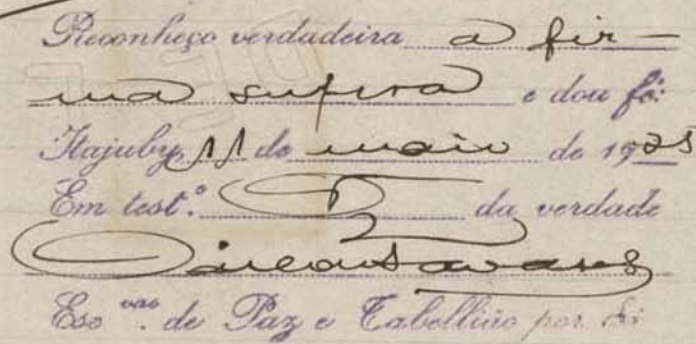 Reconheço verdadeira a fir-
ma supra e dou fé:
Itajuby, 11 de maio de 1925
Em test.º da verdade
Tavares
Esc.vao. de Paz e Tabellião por